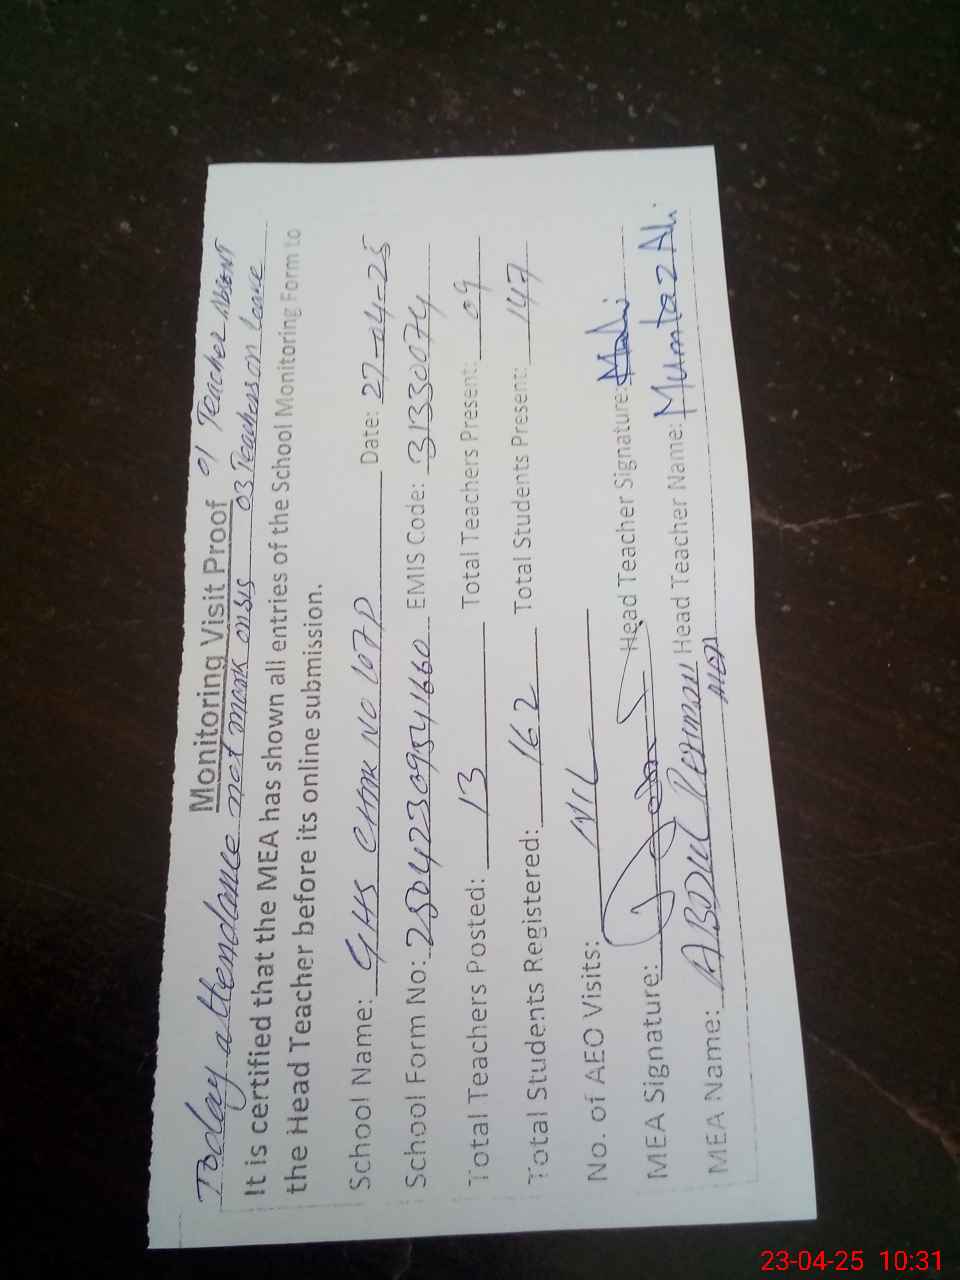 Monitoring Visit Proof 01 Teacher ABSENT
Today attendance not mark on SIS 03 Teachers on leave
It is certified that the MEA has shown all entries of the School Monitoring Form to
the Head Teacher before its online submission.
School Name: GHS CHAK NO 107P Date: 27-04-25
School Form No: 25042309541660 EMIS Code: 31330074
Total Teachers Posted: 13 Total Teachers Present: 09
Total Students Registered: 162 Total Students Present: 147
No. of AEO Visits: NIL
MEA Signature: Head Teacher Signature:
MEA Name: ABDUL REHMAN Head Teacher Name: Mumtaz Ali.
23-04-25 10:31